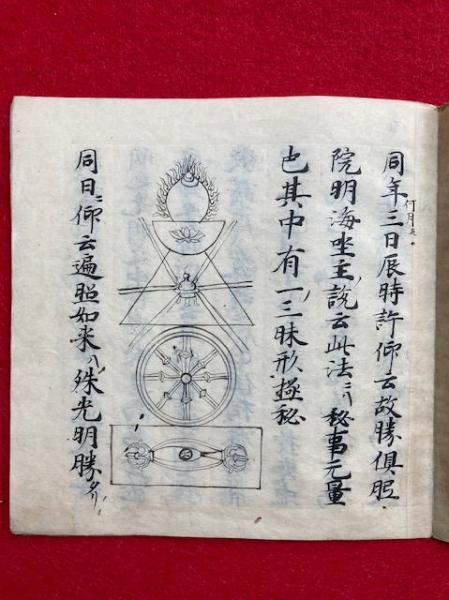 同年三日辰時許仰云故勝俱胝
何月乎
院明海坐主説云此法ニハ秘事元量
也其中有一三昧形極秘
同日ニ仰云遍照如来ハ殊光明勝タリ